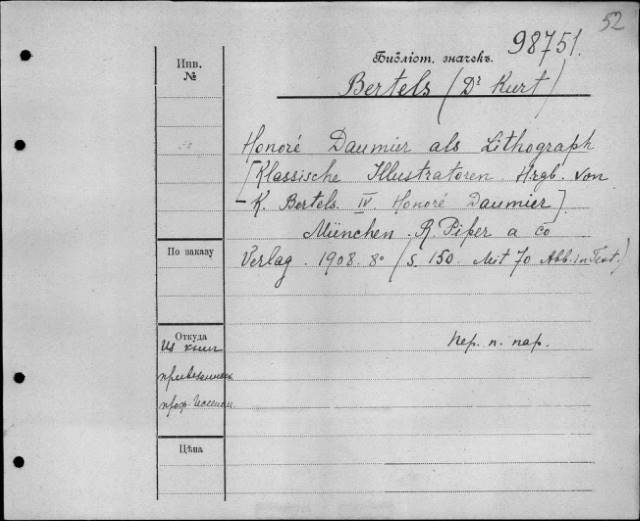 52
98751.
Инв. №
Библіот. значокъ.
Bertels (Dr Kurt)
Honoré Daumier als Lithograph
[Klassische Illustratoren. Hrgb. von
K. Bertels. IV. Honoré Daumier].
München. R. Piper a Co
По заказу
Verlag. 1908. 8º (S. 150. Mit 70 Abb. in Text.)
Откуда
Из книг
пер. п. пар.
проф.
Цѣна